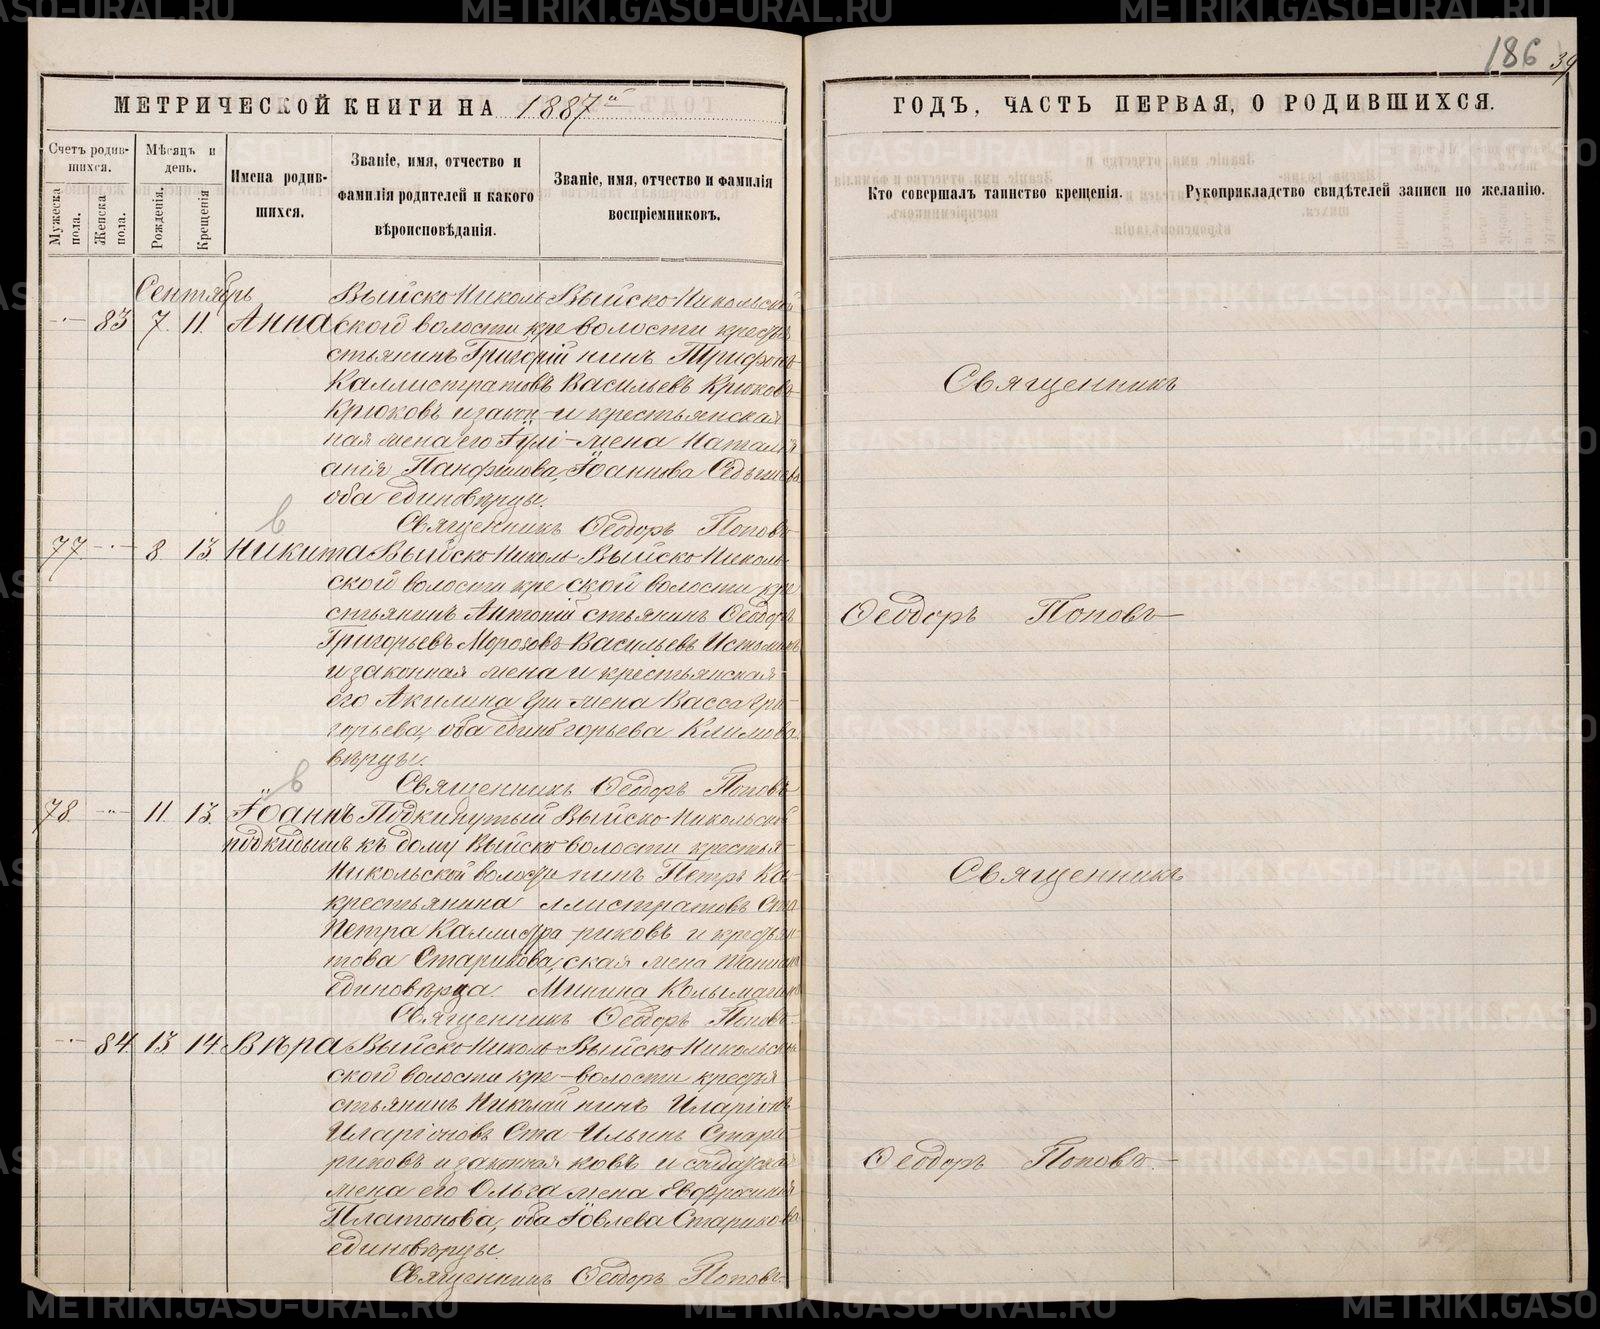 186
39
МЕТРИЧЕСКОЙ КНИГИ НА 1887й
ГОДЪ, ЧАСТЬ ПЕРВАЯ, О РОДИВШИХСЯ.
Счетъ родив-
шихся.
Мужеска
пола.
Женска
пола.
Мѣсяцъ и
день.
Рожденія.
Крещенія
Имена родив-
шихся.
Званіе, имя, отчество и
фамилія родителей и какого
вѣроисповѣданія.
Званіе, имя, отчество и фамилія
воспріемниковъ.
Кто совершалъ таинство крещенія.
Рукоприкладство свидѣтелей записи по желанію.
Сентябрь
83 7. 11. Анна
Выйско-Николь
ской волости кре
стьянинъ Григорій
Каллистратовъ
Крюковъ и закон
ная жена его Іулі-
анія Панфилова,
оба единовѣрцы.
Выйско-Никольской
волости крестья
нинъ Трифонъ
Васильевъ Крюковъ
и крестьянская
жена Наталія
Іоаннова Седышева
Священникъ Ѳеодоръ Поповъ
77. 8. 13. Никита
Выйско-Николь
ской волости кре
стьянинъ Антоній
Григорьевъ Морозовъ
и законная жена
его Акилина Гри
горьева, оба едино
вѣрцы.
Выйско-Николь-
ской волости кре
стьянинъ Ѳеодоръ
Васильевъ Истоминъ
и крестьянская
жена Васса Гри-
горьева Климова
Священникъ Ѳеодоръ Поповъ
78. 11. 13. Іоаннъ
подкидышъ
Подкинутый
къ дому Выйско
Никольской волости
крестьянина
Петра Каллистра
това Старикова,
единовѣрца.
Выйско-Никольской
волости крестья-
нинъ Петръ Ка-
ллистратовъ Ста
риковъ и крестьян-
ская жена
Минина Колымагина
Священникъ Ѳеодоръ Поповъ
84. 13. 14. Вѣра
Выйско-Николь
ской волости кре-
стьянинъ Николай
Иларіоновъ Ста
риковъ и законная
жена его Ольга
Платонова, оба
единовѣрцы.
Выйско-Никольской
волости крестья
нинъ Иларіонъ
Ильинъ Стари-
ковъ и солдатская
жена Евфросинія
Іовлева Старикова
Священникъ Ѳеодоръ Поповъ
Священникъ
Ѳеодоръ Поповъ
Священникъ
Ѳеодоръ Поповъ.
METRIKI.GASO-URAL.RU